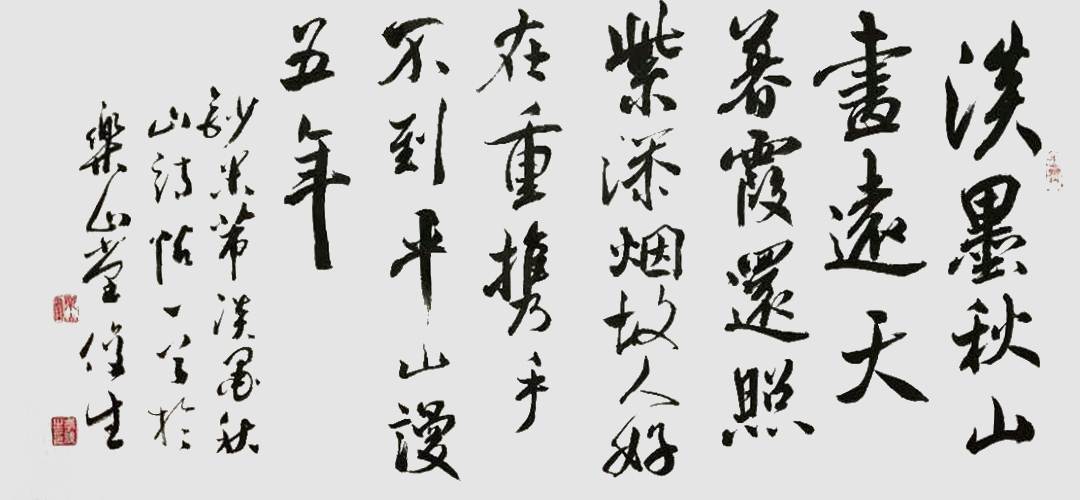 淡墨秋山
畫遠天
暮霞還照
紫添烟故人好
在重携手
不到平山謾
五年
鈔米芾淡墨秋
山詩帖一首於
樂山堂俊生